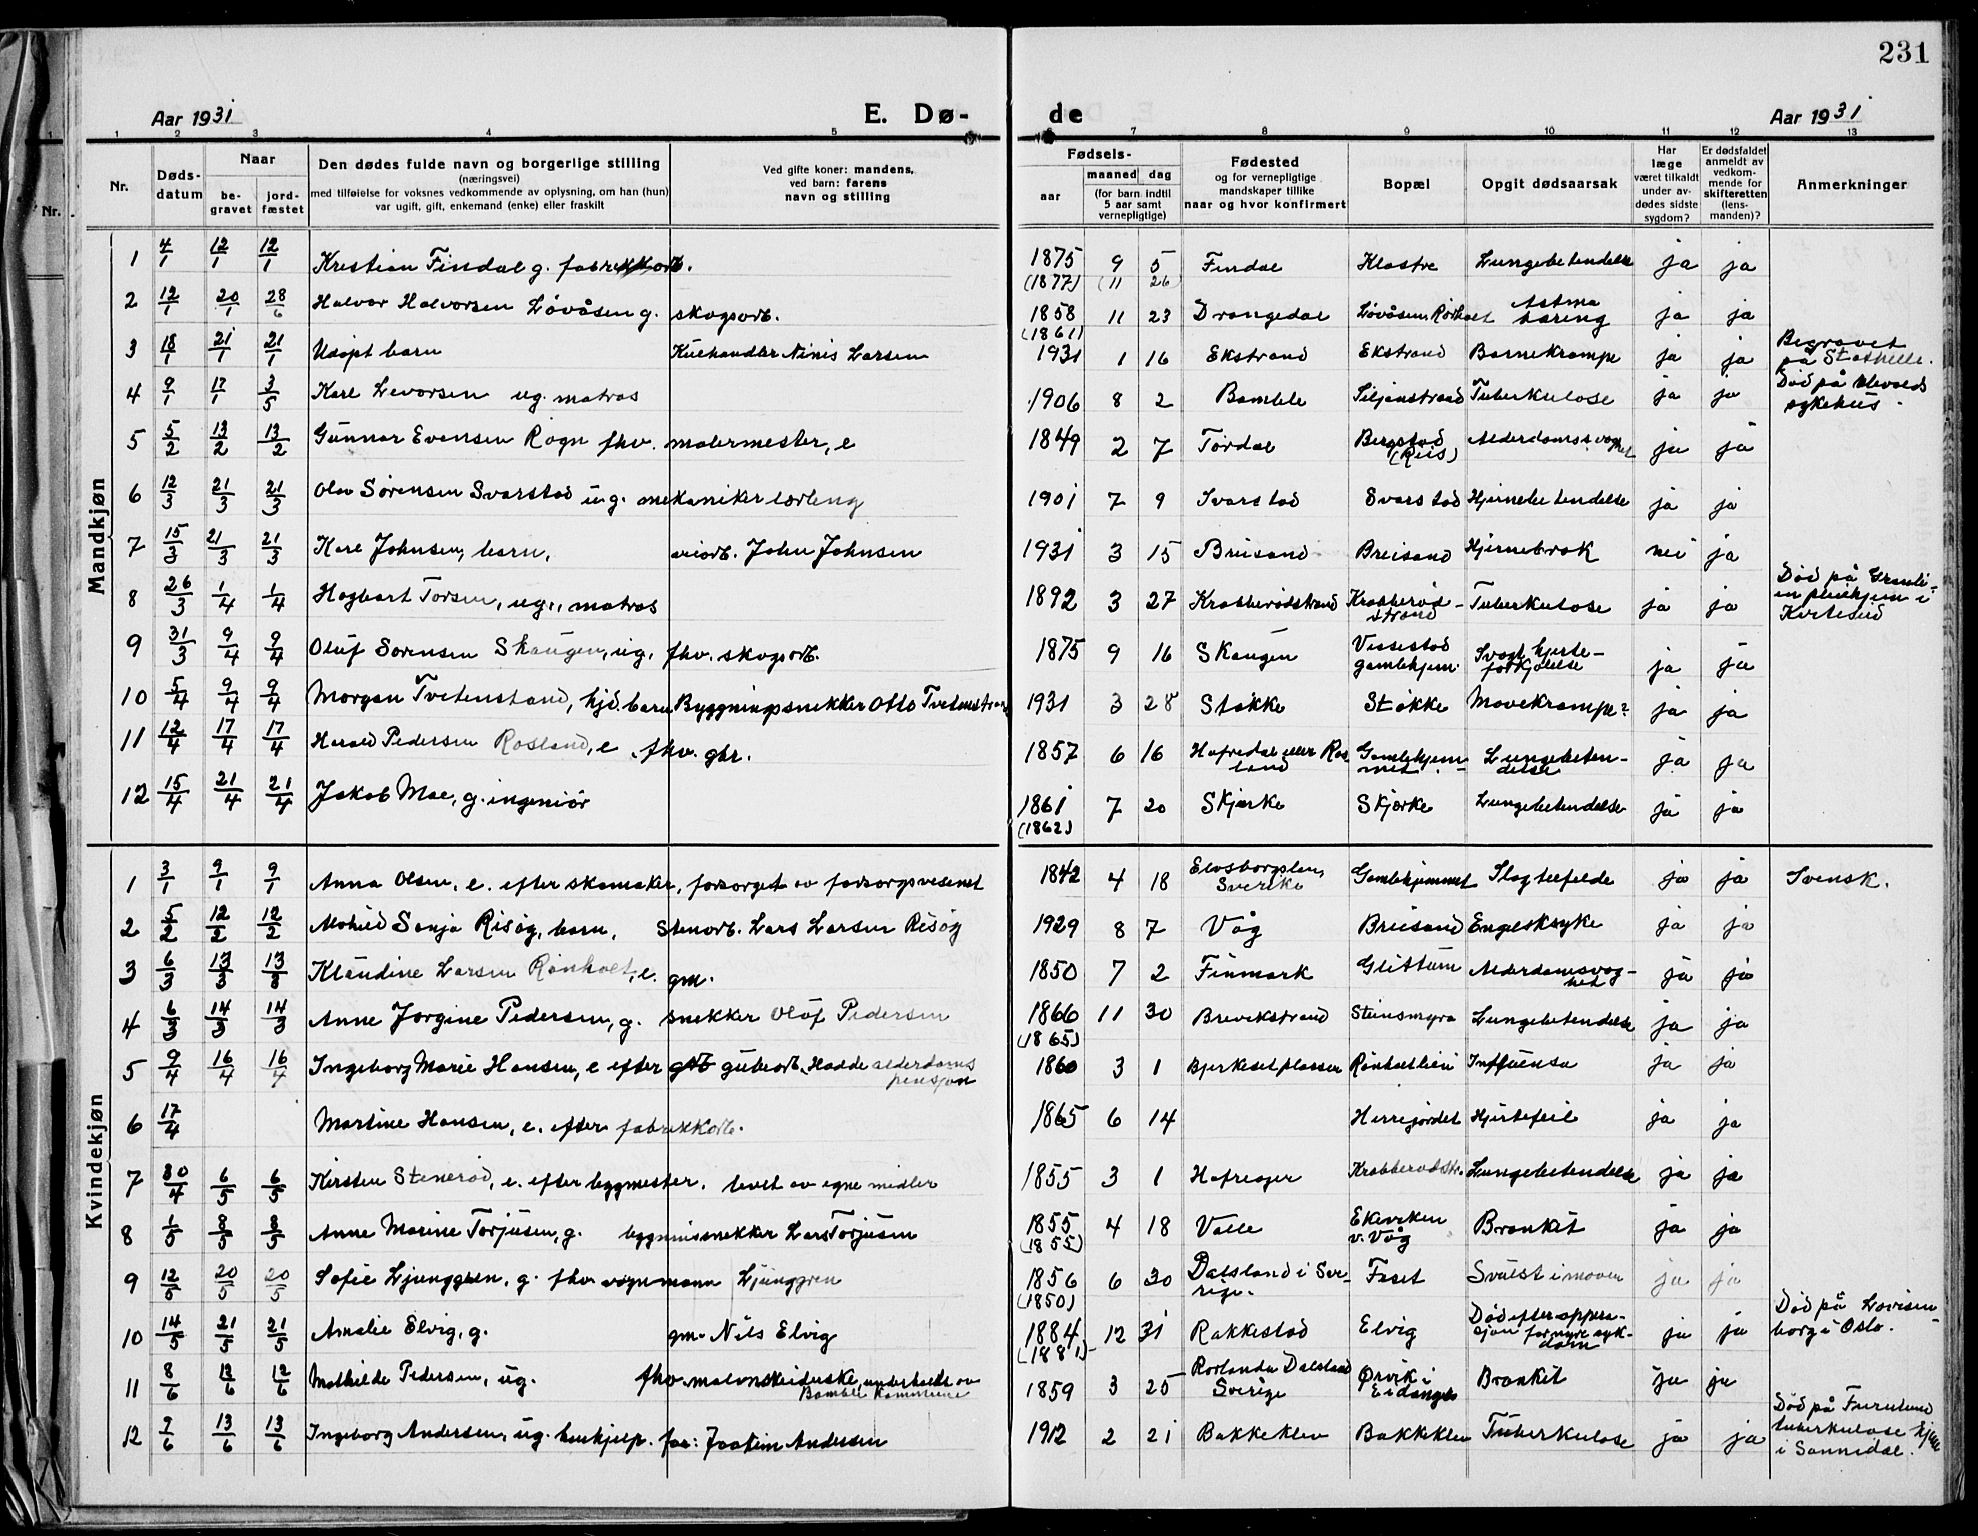 231
Aar 1931 E. Dø- de Aar 1931
1 2 3 4 5 6 7 8 9 10 11 12 13
Nr. Døds-datum Naar be-gravet jord-fæstet Den dødes fulde navn og borgerlige stilling (næringsvei) med tilføielse for voksnes vedkommende av oplysning, om han (hun) var ugift, gift, enkemand (enke) eller fraskilt Ved gifte koner: mandens, ved barn: farens navn og stilling Fødsels- aar maaned dag (for barn indtil 5 aar samt vernepligtige) Fødested og for vernepligtige mandskaper tillike naar og hvor konfirmert Bopæl Opgit dødsaarsak Har læge været tilkaldt under av-dødes sidste sygdom? Er dødsfaldet anmeldt av vedkom-mende for skifteretten (lens-manden)? Anmerkninger
Mandkjøn
1 4/1 12/1 12/1 Kristian Findal g. fabrikkarb. 1875 (1877) 9 (11 5 26) Findal Klostre Lungebetendelse ja ja
2 12/1 20/1 28/6 Halvor Halvorsen Løvåsen g. skogsarb. 1858 (1861) 11 23 Drangedal Løvåsen, Rørholt Astma ja ja
3 18/1 21/1 21/1 Udøpt barn Ninis Larsen 1931 1 16 Ekstrand Ekstrand Barnekrampe ja ja Begravet på Stathelle.
4 9/1 17/1 3/5 Karl Levorsen ug. matros 1906 8 2 Bamble Siljanstrand Tuberkulose ja ja Død på sykehus.
5 5/2 13/2 13/2 Gunnar Evensen Rogn fhv. malermester, e 1849 2 7 Tørdal Bergstad (Reis) Alderdomssvaghet ja ja
6 12/3 21/3 21/3 Olav Sørensen Svarstad ug. mekaniker lærling 1901 7 9 Svarstad Svarstad Hjernebetendelse ja ja
7 15/3 21/3 21/3 Kare Johnsen, barn, veiarb. John Johnsen 1931 3 15 Breisand Breisand Hjernebrok nei ja
8 26/3 1/4 1/4 Hagbart Torsen, ug., matros 1892 3 27 Krabberødstrand Krabberød-strand Tuberkulose ja ja Død på Granli-en pleiehjem i Kviteseid
9 31/3 9/4 9/4 Oluf Sørensen Skaugen, ug. fhv. skogsarb. 1875 9 16 Skaugen Vissestad gamlehjem. Svagt hjerte-forkjølelse ja ja
10 5/4 9/4 9/4 Morgan Tvetenstrand, hjd. barn Bygningssnekker Otto Tvetenstrand 1931 3 28 Stokke Stokke Mavekrampe? ja ja
11 12/4 17/4 17/4 Harald Pedersen Rosland, e fhv. gbr. 1857 6 16 Hafredal eller Rosland Gamlehjem-met Lungebeten-delse ja ja
12 15/4 21/4 21/4 Jakob Moe, g. ingeniør 1861 (1862) 7 20 Skjerke Skjerke Lungebetendelse ja ja
Kvindekjøn
1 3/1 9/1 9/1 Anna Olsen, e. efter skomaker, forsørget av forsorgsvesenet 1842 4 18 Elvsborgslen, Sverike Gamlehjemmet Slagtilfelde ja ja Svensk.
2 5/2 12/2 12/2 Sonja Risøy, barn, Stenarb. Lars Larsen Risøy 1929 8 7 Våg Breisand Engelsksyke ja ja
3 6/3 13/3 13/3 Klaudine Larsen Rønholt, e. gm. 1850 7 2 Finmark Glittum Alderdomsvag-het ja ja
4 6/3 14/3 14/3 Anne Jørgine Pedersen, g. snekker Olof Pedersen 1866 (1865) 11 30 Brevikstrand Steinsmyra Lungebetendelse ja ja
5 9/4 16/4 16/4 Ingeborg Marie Hansen, e efter gubearb. Hadde alderdoms pensjon 1860 3 1 Bjerkesetplassen Rønholtlien Influensa ja ja
6 17/4 Martine Hansen, e. efter fabrikkarb. 1865 6 14 Herregårdet Hjertefeil ja ja
7 30/4 6/5 6/5 Kirsten Stenerød, e. efter byggmester. levet av egne midler 1855 3 1 Hafreager Krabberødstr. Lungebetendelse ja ja
8 1/5 8/5 8/5 Anne Marine Torjusen, g. bygningssnekker Lars Torjusen 1855 (1855) 4 18 Valle Ekeviken v. Våg Bronkit ja ja
9 12/5 20/5 20/5 Sofie Ljunggren, g. fhv. vognmann Ljunggren 1856 (1850) 6 30 Dalsland i Sve-rige. Foset Svulst i maven ja ja
10 14/5 21/5 21/5 Amalie Elvig, g. gm. Nils Elvig 1884 (1881) 12 31 Rakkestad Elvig Død efter oppera-sjon for nyre syk-dom ja ja Død på Lovisen-borg i Oslo.
11 8/6 12/6 12/6 Mathilde Pedersen, ug. fhv. underholdt av Bamble Kommune 1859 3 25 Dalsland Sverige Ørvik i Eidanger Bronkit ja ja
12 9/6 13/6 13/6 Ingeborg Andersen, ug. hushjelp. far: Joakim Andersen 1912 2 21 Bakkeklev Bakkeklev Tuberkulose ja ja Død på Furulund tuberkulose hjem i Sannidal.